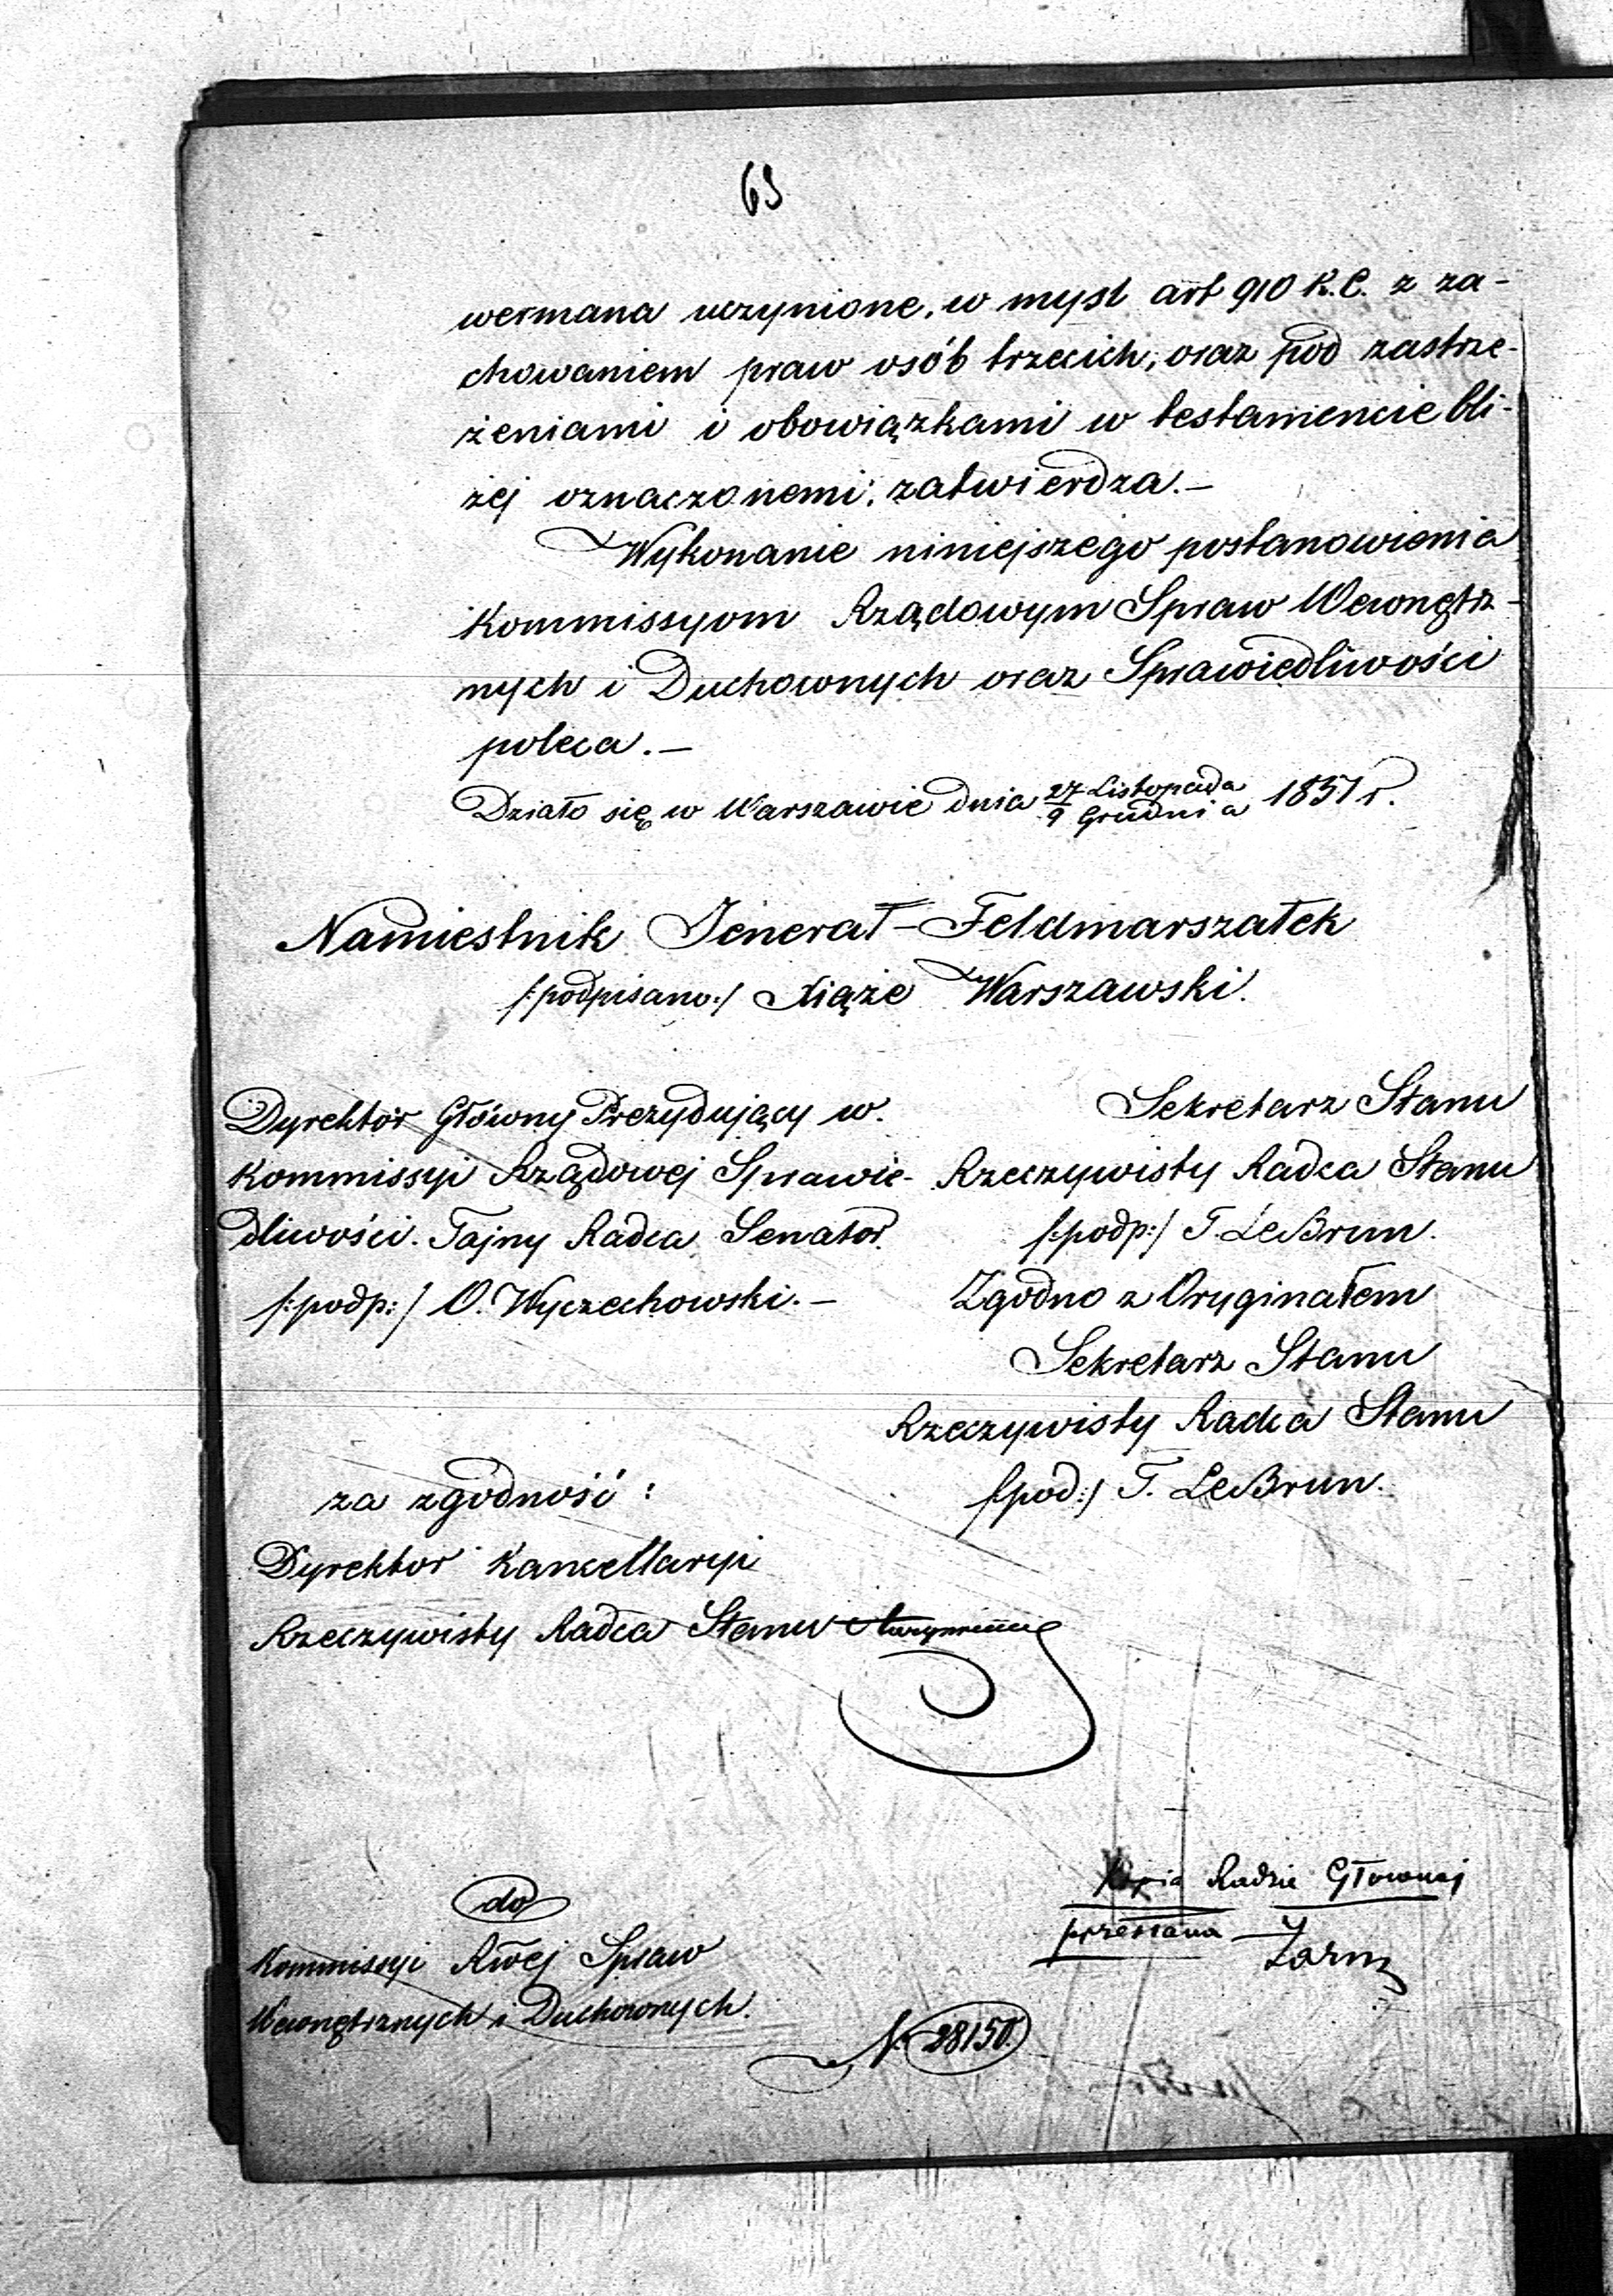 63
wermana uczynione, w mysl art 910 K.C. z za-
chowaniem praw osób trzecich, oraz pod zastrze-
żeniami i obowiązkami w testamencie bli-
żej oznaczonemi, zatwierdza.—
Wykonanie niniejszego postanowienia
Kommissyom Rządowym Spraw Wewnętrz-
nych i Duchownych oraz Sprawiedliwości
poleca.—
Działo się w Warszawie dnia 27 Listopada / 9 Grudnia 1851 r.
Namiestnik Jenerał-Feldmarszałek
/:podpisano:/ Xiąże Warszawski.
Dyrektor Główny Prezydujący w.
Kommissyi Rządowej Sprawie-
dliwości. Tajny Radca Senator.
/:podp:/ O. Wyczechowski.—
Sekretarz Stanu
Rzeczywisty Radca Stanu
/:podp:/ T. LeBrun.
Zgodno z Oryginałem
Sekretarz Stanu
Rzeczywisty Radca Stanu
/:pod:/ T. LeBrun.
za zgodność:
Dyrektor Kancellaryi
Rzeczywisty Radca Stanu
do
Kommissyi Rwej Spraw
Wewnętrznych i Duchownych.
Kopia Radzie Głownej
przesłana —
N. 28150.